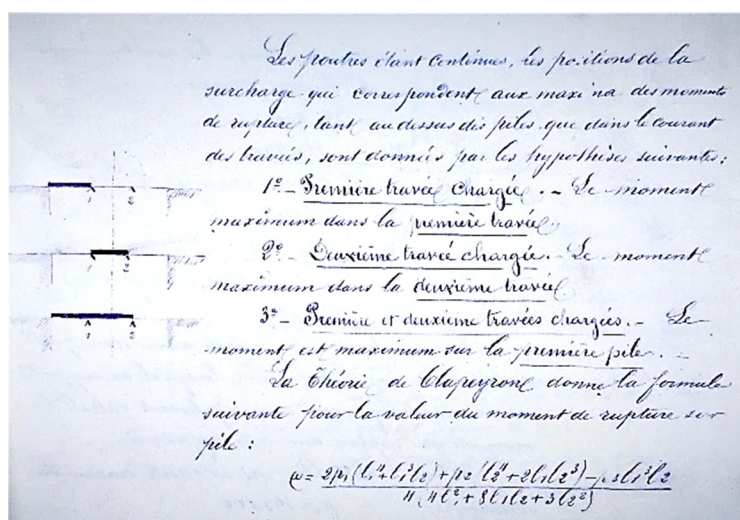 Les poutres étant continues, les positions de la
surcharge qui correspondent aux maxima des moments
de rupture, tant au dessus des piles que dans le courant
des travées, sont données par les hypothèses suivantes :
1º - Première travée chargée. - Le moment
maximum dans la première travée
2º - Deuxième travée chargée. - Le moment
maximum dans la deuxième travée
3º - Première et deuxième travées chargées. - Le
moment est maximum sur la première pile. -
La Théorie de Clapeyrone donne la formule
suivante pour la valeur du moment de rupture sur
pile :
1 2
1 2
1 2